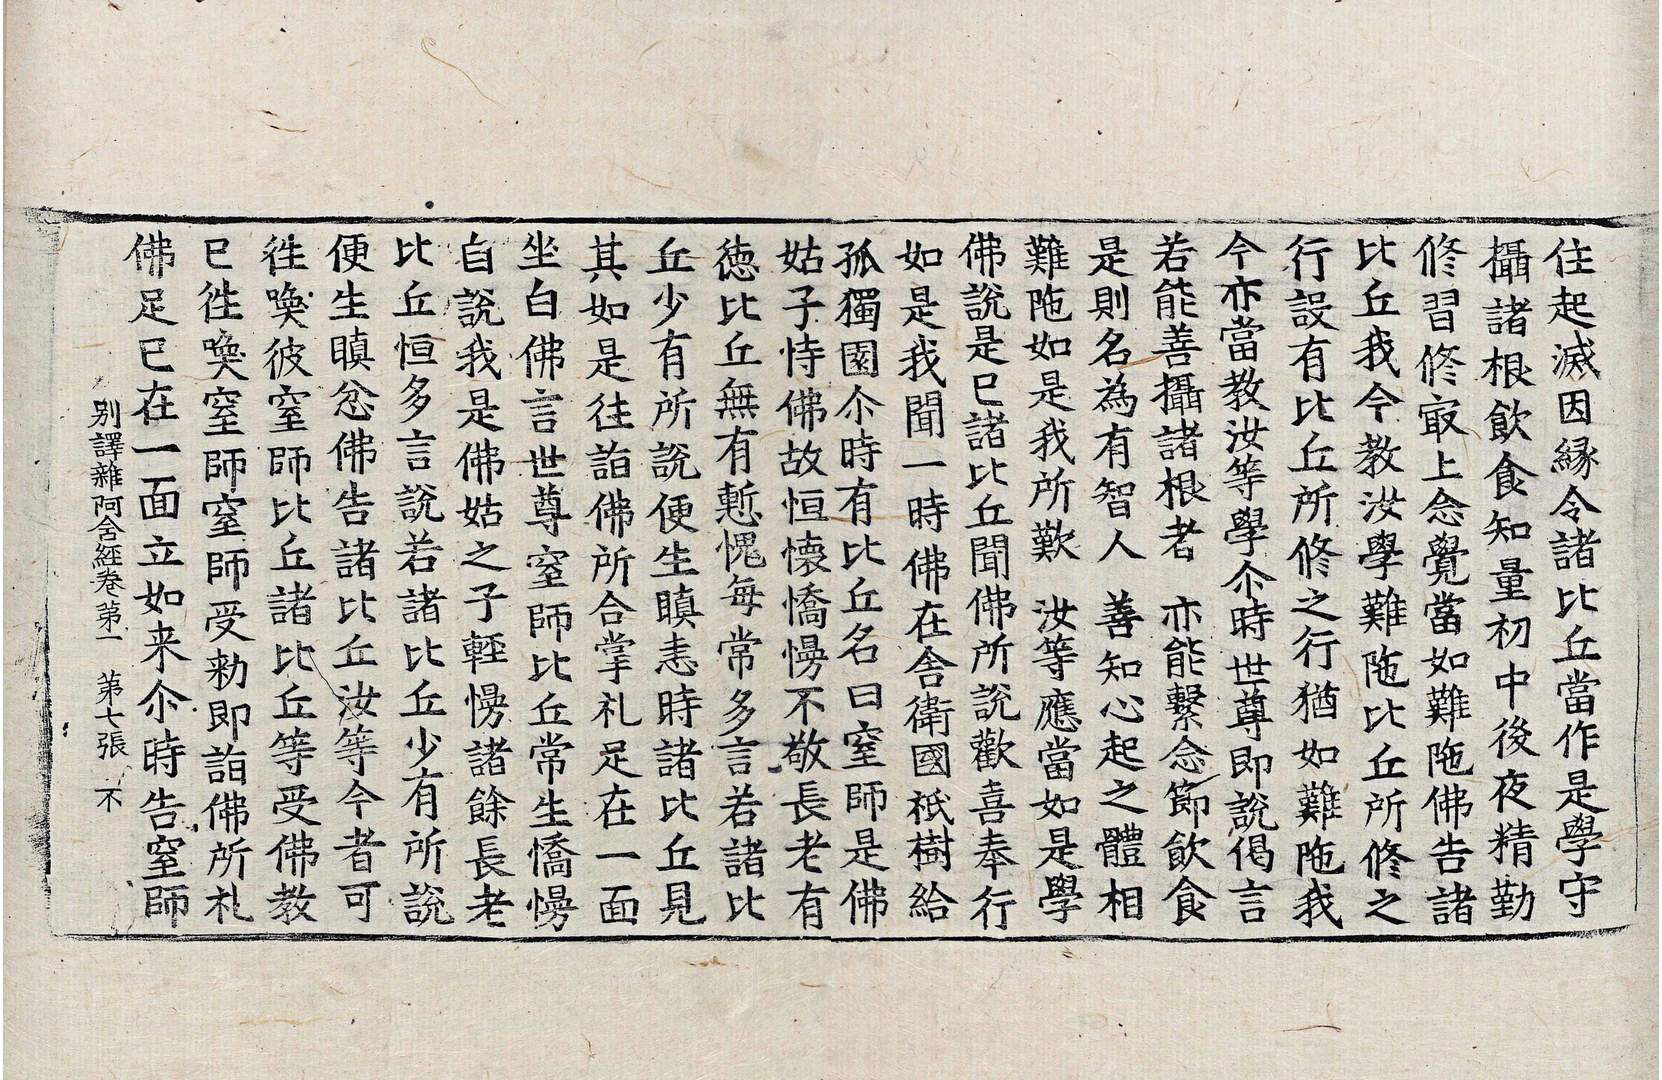 住起滅因縁令諸比丘當作是學守
攝諸根飲食知量初中後夜精勤
修習修㝡上念覺當如難陁佛告諸
比丘我今教汝學難陁比丘所修之
行設有比丘所修之行猶如難陁我
今亦當教汝等學尒時世尊即說偈言
若能善攝諸根者　亦能繫念節飲食
是則名為有智人　善知心起之體相
難陁如是我所歎　汝等應當如是學
佛說是已諸比丘聞佛所說歡喜奉行
如是我聞一時佛在舍衛國祇樹給
孤獨園尒時有比丘名曰窒師是佛
姑子恃佛故恒懷憍慢不敬長老有
德比丘無有慙愧每常多言若諸比
丘少有所說便生瞋恚時諸比丘見
其如是往詣佛所合掌礼足在一面
坐白佛言世尊窒師比丘常生憍慢
自說我是佛姑之子輕慢諸餘長老
比丘恒多言說若諸比丘少有所說
便生瞋忿佛告諸比丘汝等今者可
徃喚彼窒師比丘諸比丘等受佛教
已徃喚窒師窒師受勑即詣佛所礼
佛足已在一面立如来尒時告窒師
别譯雜阿含經卷第一　第七張　不